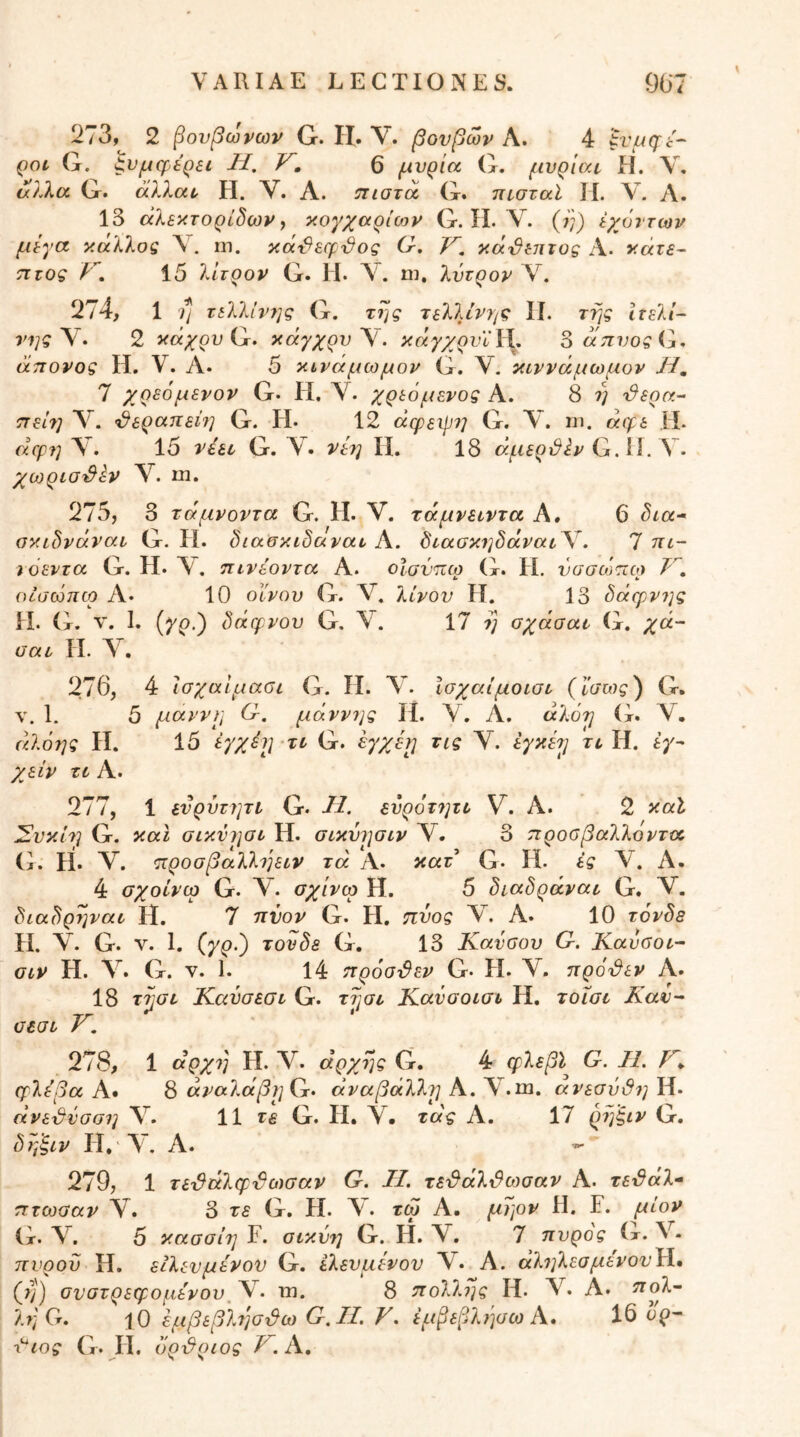 VARIAE LECTIONES. 967
273, 2 βουβώνων G. H. V. βουβῶν A. 4 ξυμφέ-
ροι G. ξυμφέρει H. V. 6 μυρία G. μυρίαι H. V.
ἄλλα G. ἄλλαι H. V. A. πιστὰ G. πισταὶ H. V. A.
13 ἀλεκτορίδων, κογχαρίων G. H. V. (ἢ) ἐχόντων
μέγα κάλλος V. m. κάθεφθος G. V. κάθεπτος A. κάτε-
πτος V. 15 λίτρον G. H. V. m. λύτρον V.
274, 1 ἢ τελλίνης G. τῆς τελλίνης H. τῆς ἰτελί-
νης V. 2 κάχρυ G. κάγχρυ V. κάγχρυϊ H. 3 ἄπυος G.
ἄπονος H. V. A. 5 κινάμωμον G. V. κιννάμωμον H.
7 χρεόμενον G. H. V. χρεόμενος A. 8 ἢ θερα-
πείη V. θεραπείη G. H. 12 ἀφειψῃ G. V. m. ἀφε H.
ἀφῃ V. 15 νέει G. V. νέῃ H. 18 ἀμερθὲν G. H. V.
χωρισθὲν V. m.
275, 3 τάμνοντα G. H. V. τάμνειντα A. 6 δια-
σκιδνάναι G. H. διασκιδάναι A. διασκηδάναι V. 7 πι-
νόεντα G. H. V. πινέοντα A. οἰσύπῳ G. H. ὑσσώπῳ V.
οἰσώπῳ A. 10 οἴνου G. V. λίνου H. 13 δάφνης
H. G. v. l. (γρ.) δάφνου G. V. 17 ἢ σχάσαι G. χά-
σαι H. V.
276, 4 ἰσχαίμασι G. H. V. ἰσχαίμοισι (ἴσως) G.
v. l. 5 μάννῃ G. μάννης H. V. A. ἀλόη G. V.
ἀλόης H. 15 ἐγχέῃ τι G. ἐγχέῃ τις V. ἐγκέῃ τι H. ἐγ-
χεῖν τι A.
277, 1 εὐρύτητι G. H. εὐρότητι V. A. 2 καὶ
Συκίη G. καὶ σικύησι H. σικύησιν V. 3 προσβαλλόντα
G. H. V. προσβάλληειν τὰ A. κατ᾽ G. H. ἐς V. A.
4 σχοίνῳ G. V. σχίνῳ H. 5 διαδράναι G. V.
διαδρῆναι H. 7 πύον G. H. πύος V. A. 10 τόνδε
H. V. G. v. l. (γρ.) τοῦδε G. 13 Καύσου G. Καύσοι-
σιν H. V. G. v. l. 14 πρόσθεν G. H. V. πρόθεν A.
18 τῇσι Καύσεσι G. τῇσι Καύσοισι H. τοῖσι Καύ-
σεσι V.
278, 1 ἀρχὴ H. V. ἀρχῆς G. 4 φλεβὶ G. H. V.
φλέβα A. 8 ἀναλάβῃ G. ἀναβάλλῃ A. V. m. ἀνεσύθη H.
ἀνεθύσσῃ V. 11 τε G. H. V. τὰς A. 17 ῥῆξιν G.
δῆξιν H. V. A.
279, 1 τεθάλφθωσαν G. H. τεθάλθωσαν A. τεθάλ-
πτωσαν V. 3 τε G. H. V. τῷ A. μῆον H. F. μίον
G. V. 5 κασσίη F. σικύη G. H. V. 7 πυρὸς G. V.
πυροῦ H. εἰλευμένου G. ἐλευμένου V. A. ἀληλεσμένου H.
(ἢ) συστρεφομένου V. m. 8 πολλῆς H. V. A. πολ-
λὴ G. 10 ἐμβεβλήσθω G. H. V. ἐμβεβλήσω A. 16 ὄρ-
θιος G. H. ὄρθριος V. A.